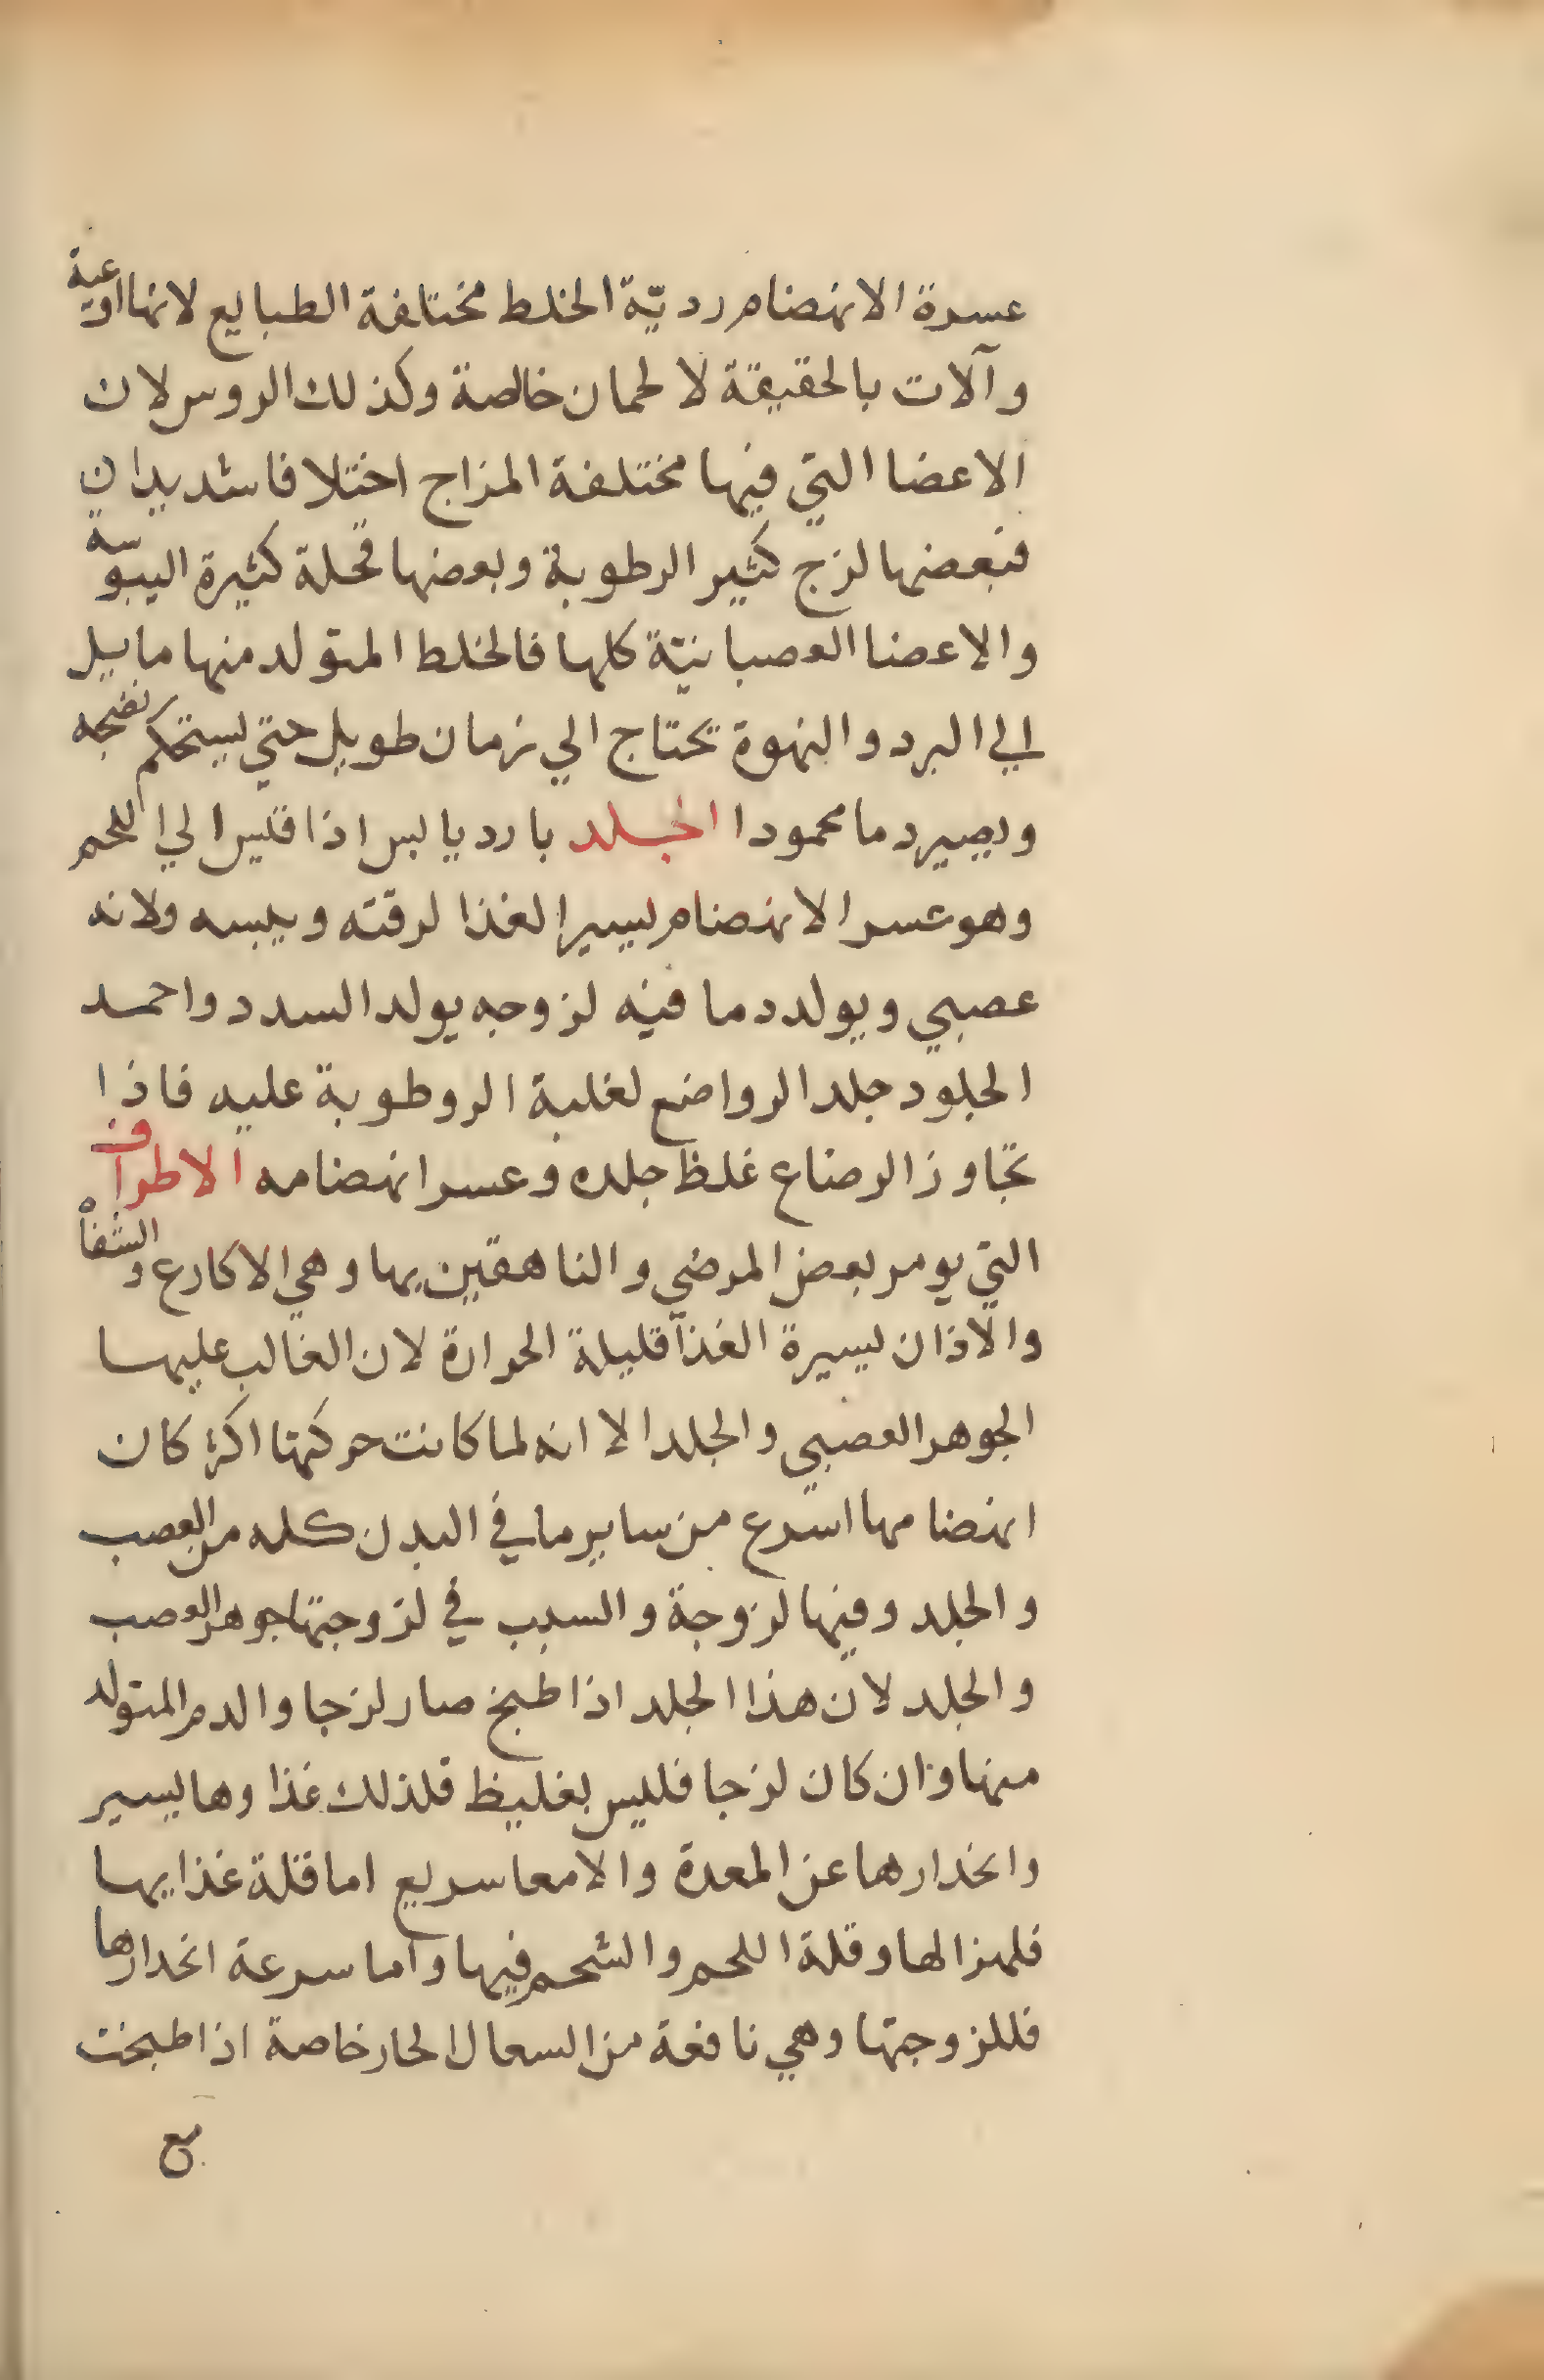 عسرة الانهضام رديّة الخلط مختلفة الطبايع لانها اوعية
وآلات بالحقيقة لا لحمان خالصة وكذلك الروس لان
الاعضا التي فيها مختلفة المزاج اختلافا شديدا ن
فبعضها لزج كثير الرطوبة وبعضها قحلة كثيرة اليبوسة
والاعضا العصبانيّة كلها فالخلط المتولد منها مايل
الي البرد والنهوة تحتاج الي زمان طويل حتي يستحكم نضجه
ويصير دما محمودا الجلد بارد يابس اذا قيس الي اللحم
وهو عسر الانهضام يسير الغذا لرقته ويبسه ولانه
عصبي ويولد دما فيه لزوجه يولد السدد واحمد
الجلود جلد الرواضع لغلبة الروطوبة عليه فاذا
تجاوز الرضاع غلظ جلده وعسر انهضامه الاطراف
التي يومر بعض المرضي والناهقين بها وهي الاكارع والشفاه
والاذان يسيرة الغذآ قليلة الحرارة لان الغالب عليها
الجوهر العصبي والجلد الا انه لما كانت حركتها اكثر كان
انهضامها اسرع من ساير ما في البدن كله من العصب
والجلد وفيها لزوجة والسبب في لزوجتها جوهر العصب
والجلد لان هذا الجلد اذا طبخ صار لزجا والدم المتولد
منها وان كان لزجا فليس بغليظ فلذلك غذاوها يسير
وانحدارها عن المعدة والامعا سريع اما قلة غذايها
فلهزالها وقلة اللحم والشحم فيها واما سرعة انحدارها
فللزوجتها وهي نافعة من السعال الحار خاصة اذا طبخت
مع